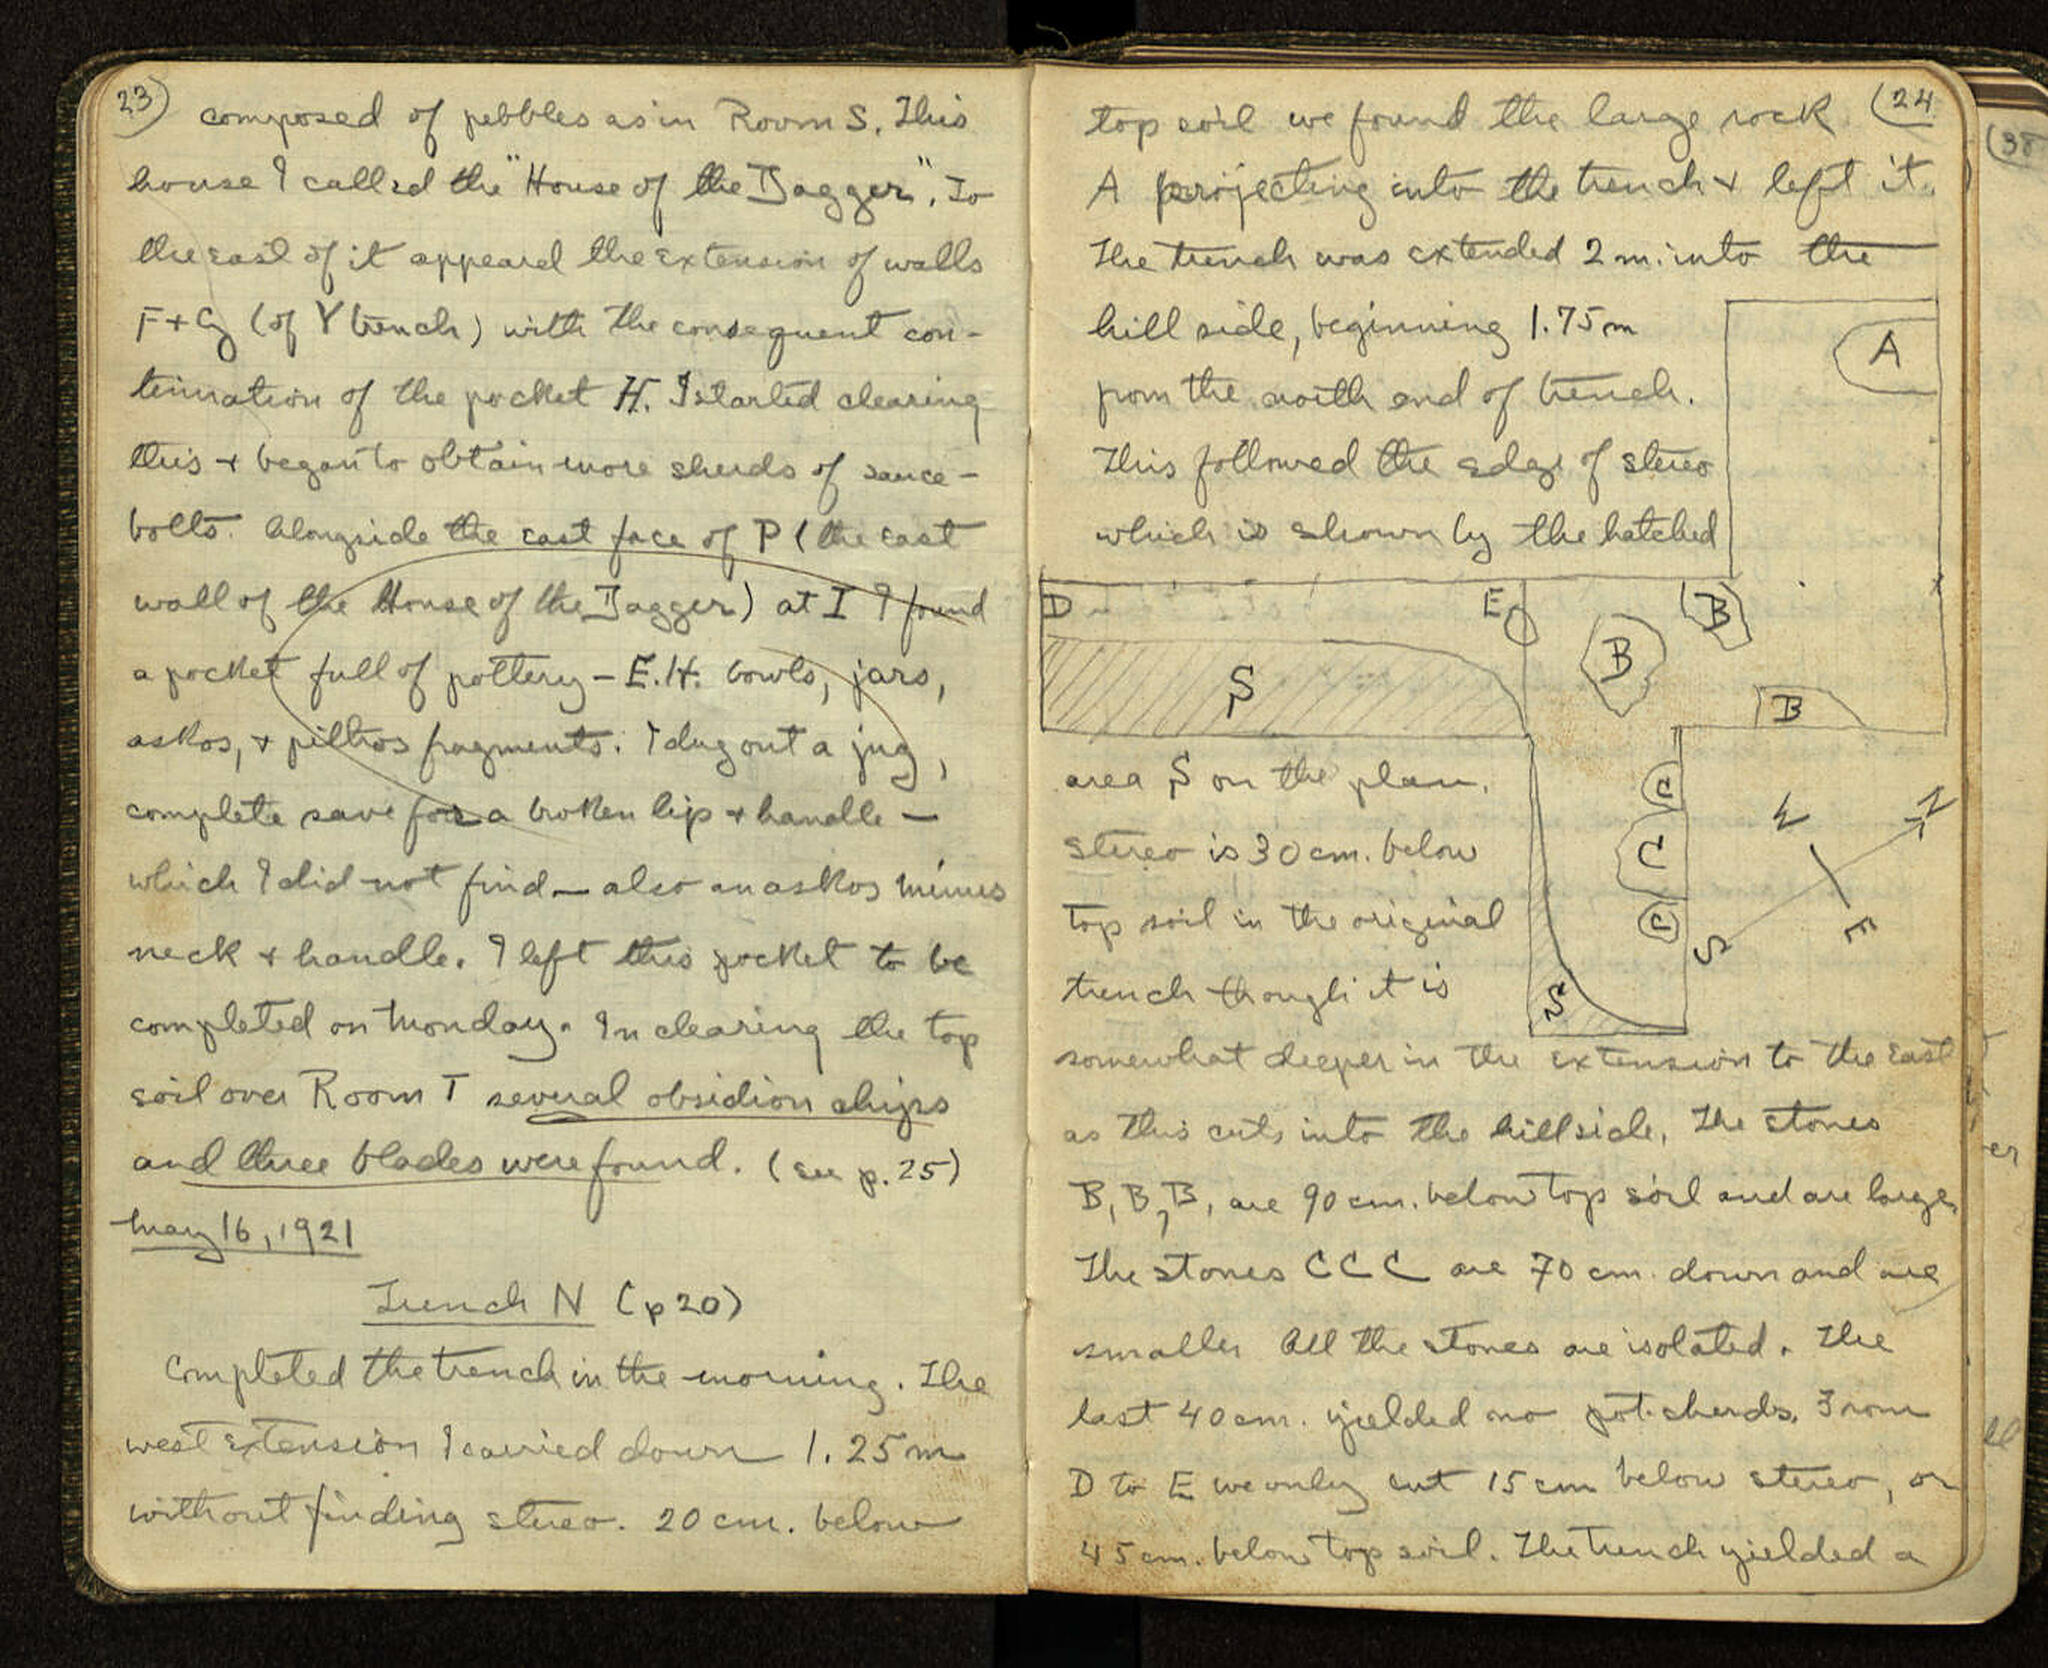 23)
composed of pebbles as in Room S. This
house I called the "House of the Dagger". To
the east of it appeared the extension of walls
F + G (of Y trench) with the consequent con-
tinuation of the pocket H. I started clearing
this + began to obtain more sherds of sauce-
boats. Alongside the east face of P (the east
wall of the House of the Dagger) at I I found
a pocket full of pottery - E.H. bowls, jars,
askos, + pithos fragments. I dug out a jug,
complete save for a broken lip + handle -
which I did not find - also an askos minus
neck + handle. I left this pocket to be
completed on Monday. In clearing the top
soil over Room T several obsidion chips
and three blades were found. (see p. 25)
May 16, 1921
Trench N (p 20)
Completed the trench in the morning. The
west extension I carried down 1.25 m
without finding stereo. 20 cm. below
(24
top soil we found the large rock
A projecting into the trench + left it.
The trench was extended 2 m. into the
hill side, beginning 1.75 m
from the north end of trench.
This followed the edge of stereo
which is shown by the hatched
A
D
E
B
B
B
S
C
C
C
S
W
N
S
E
area S on the plan.
Stereo is 30 cm. below
top soil in the original
trench though it is
somewhat deeper in the extension to the East
as this cuts into the hillside. The stones
B, B, B, are 90 cm. below top soil and are large.
The stones C C C are 70 cm. down and are
smaller. All the stones are isolated. The
last 40 cm. yielded no potsherds. From
D to E we only cut 15 cm below stereo, or
45 cm. below top soil. The trench yielded a
(38